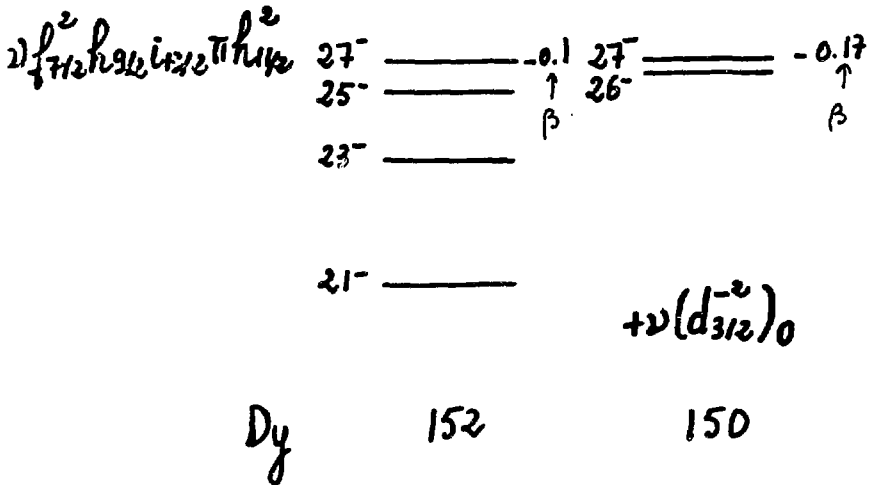 ν f²7/2 h9/2 i13/2 πh²11/2 27⁻ -0.1 27⁻ -0.17
25⁻ ↑ 26⁻ ↑
β β
23⁻
21⁻
+ν(d⁻²3/2)0
Dy 152 150